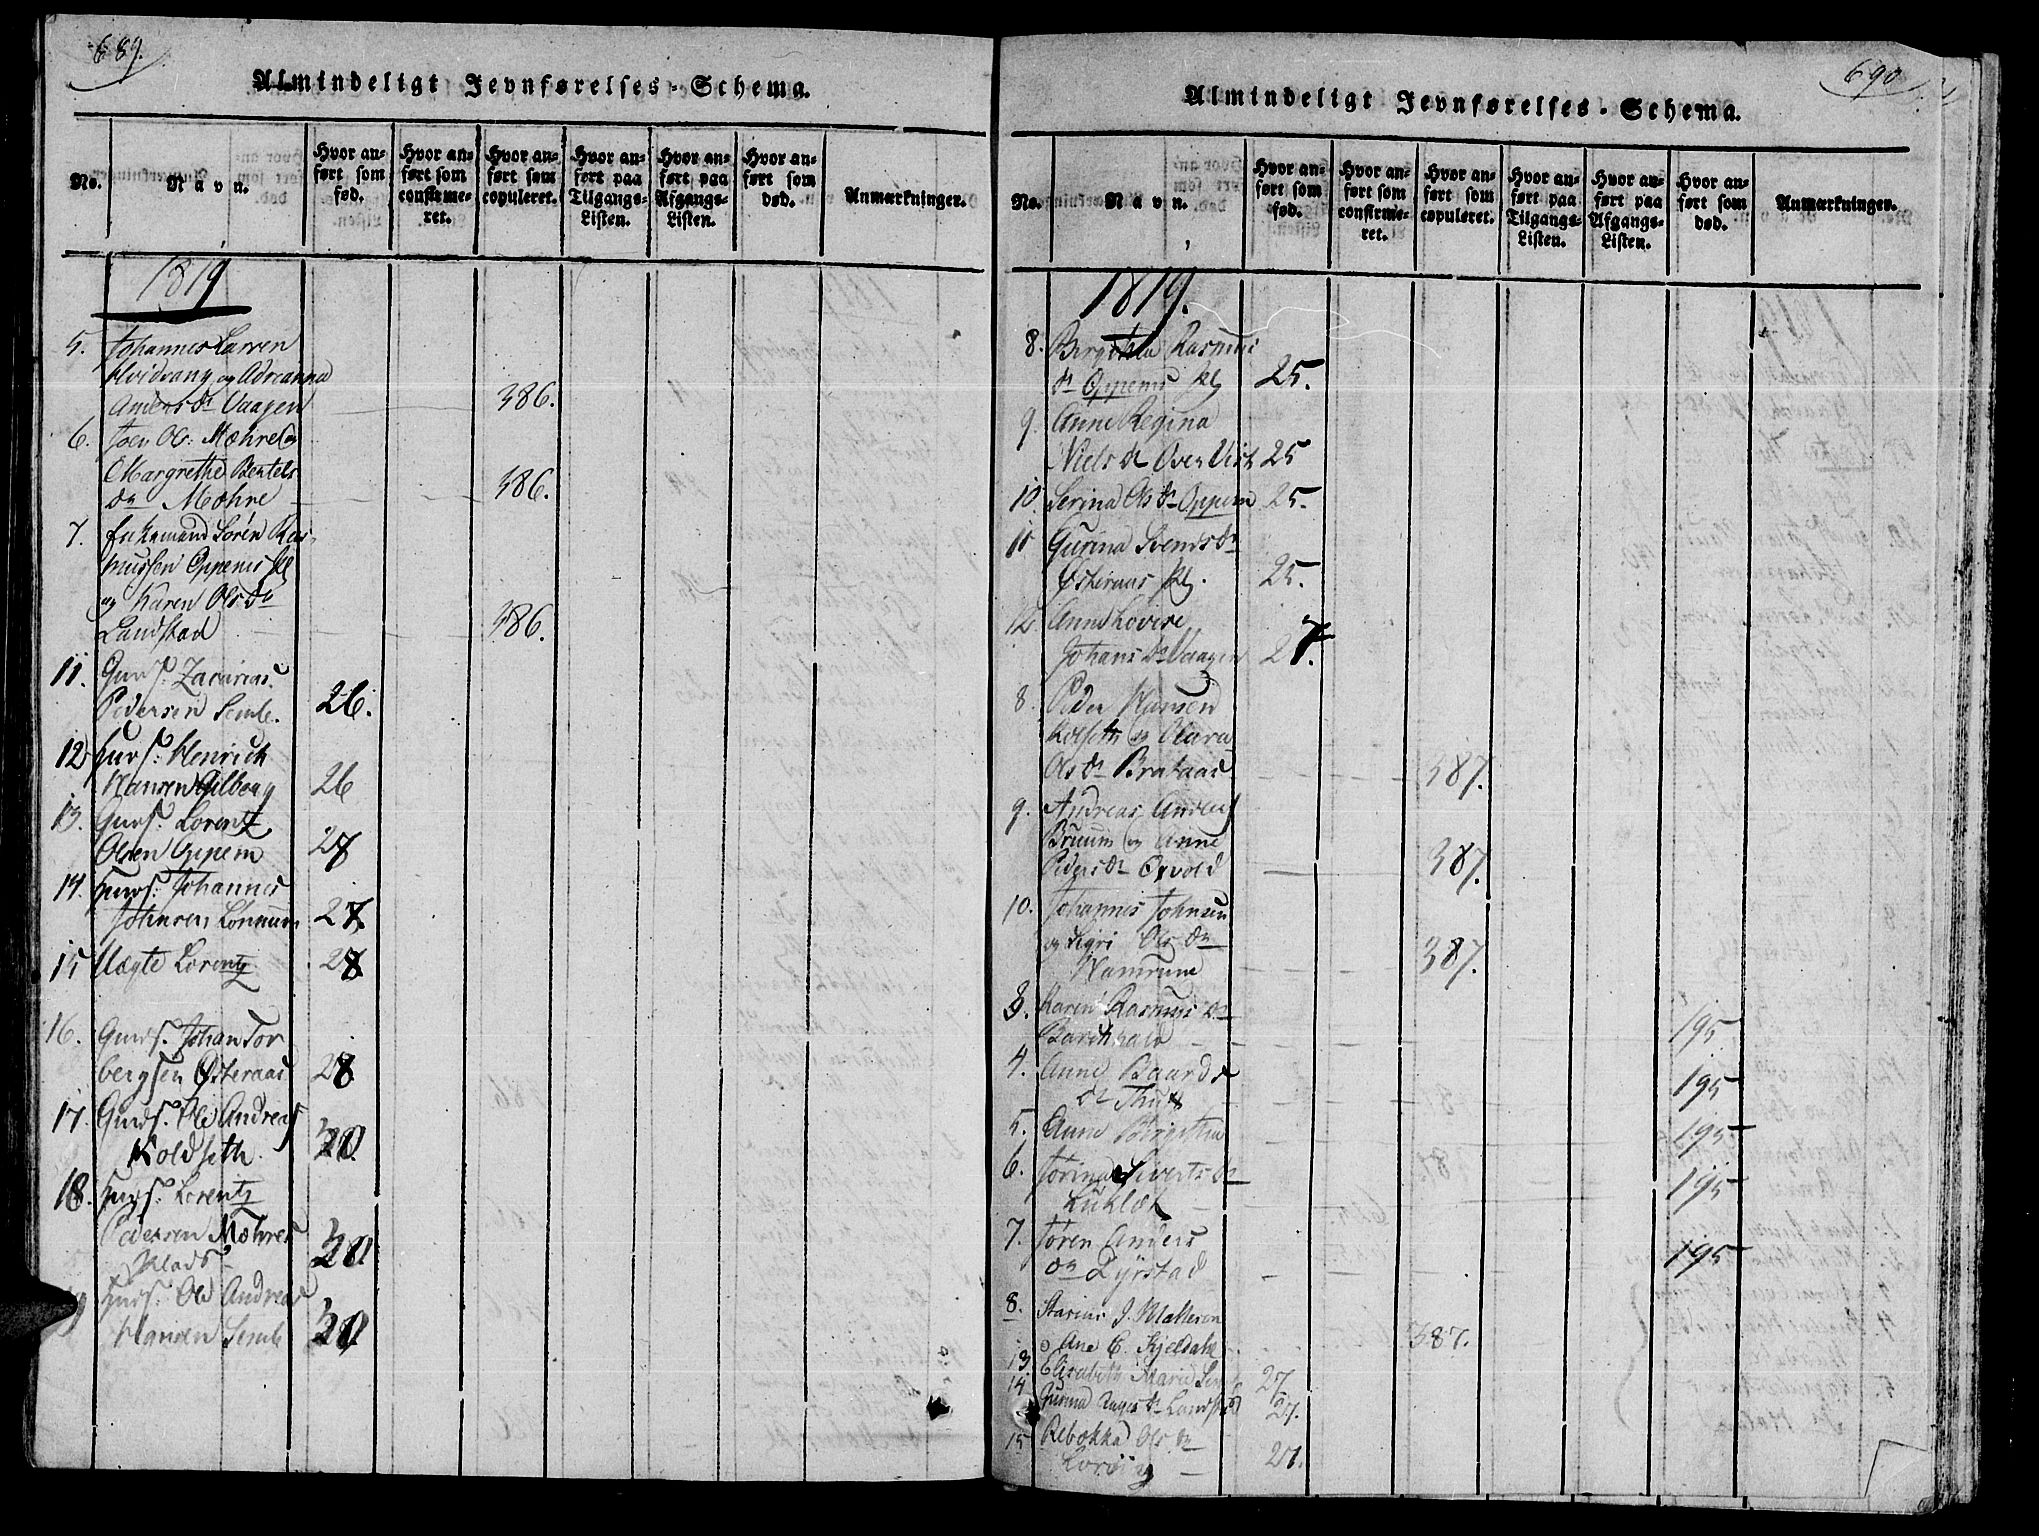 689.
Almindeligt Jevnførelses-Schema.
No.
Navn.
Hvor an-
ført som
fød.
Hvor an-
ført som
confirme-
ret.
Hvor an-
ført som
copuleret.
Hvor an-
ført paa
Tilgangs-
Listen.
Hvor an-
ført paa
Afgangs-
Listen.
Hvor an-
ført som
død.
Anmærkninger.
1819
5. Johannes Larsen
Hvidvang og Adreanna
Anders Dr Vaagen 386.
6. Joen Ols: Mæhre og
Margrethe Bertels
Dr Mæhre 386.
7. Enkemand Sørén Ras-
mussen Oppems
og Karen Ols Dr
Landstad 386.
11. Zacarias
Pedersen Semle. 26.
12 Henrich
Hansen 26
13. Lorentz
Olsen Oppem 28
14. Johannes
Johnsen 28
15 Uægte Lorentz 28
16. Johan Tor
bergsen Østeraas 28
17. Ole Andreas
Koldseth
18. Lorentz
Pedersen Mæhres
19 Ole Andreas
Hansen Semle
690
Almindeligt Jevnførelses-Schema.
No.
Navn.
Hvor an-
ført som
fød.
Hvor an-
ført som
confirme-
ret.
Hvor an-
ført som
copuleret.
Hvor an-
ført paa
Tilgangs-
Listen.
Hvor an-
ført paa
Afgangs-
Listen.
Hvor an-
ført som
død.
Anmærkninger.
1819.
8. Rasmus
Dr Oppems 25.
9. Anne Regina
Niels Dr Over Vist 25
10 Serina Ols Dr Oppem 25.
11 Gurina Svends Dr
Østeraas 25.
12 Anne Lovise
Johans Dr Vaagen 27.
8. Peder Hansen
Kolseth og Olava
Ols Dr Brataas 387.
9. Andreas Anders
Bruum og Anne
Peders Dr Qvold 387.
10. Johannes Johnsen
og Sigri Ols Dr
Hamrune 387.
3. Karen Rasmus Dr
195
4. Anne Baards
Dr 195
5. Anne Birgitha 195
6. Torina Siverts Dr
195
7. Toren Anders
Dr Lyrstad 195
8. J. Mathesen
o Ane E. Kjeldahl 387.
13. Elisabeth Marie 27
14 Gurina Dr Landstad 27.
15 Rebekka Ols Dr
27.